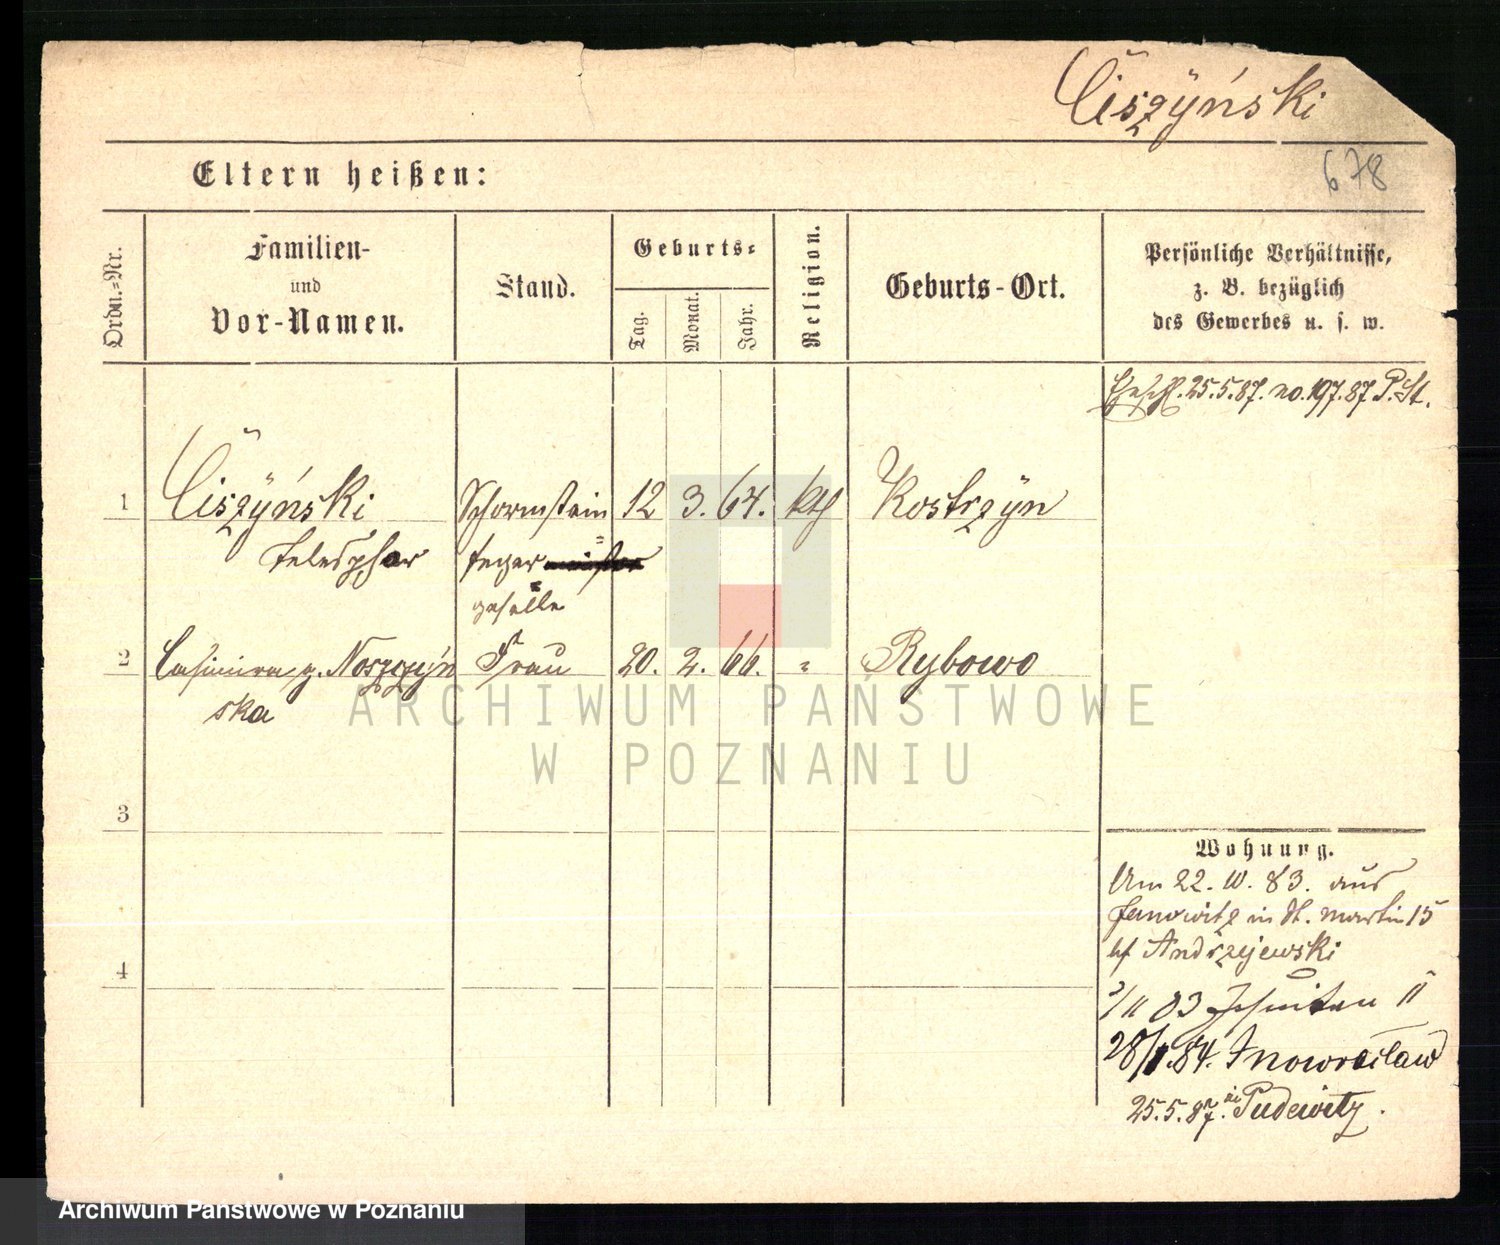 Ciszyński
678
Eltern heißen:
Ordn.-Nr.
Familien-
und
Vor-Namen.
Stand.
Geburts-
Tag.
Monat.
Jahr.
Religion.
Geburts-Ort.
Persönliche Verhältnisse,
z. B. bezüglich
des Gewerbes u. s. w.
Eheschl. 25.5.87. no. 197.87 P. St.
1 Ciszyński Schornstein 12 3. 64. kth Kostrzyn
Telesphor feger
geselle
2 Casimira g. Noszczyń Frau 20. 2. 66. " Rybowo
ska
ARCHIWUM PAŃSTWOWE
W POZNANIU
3
Wohnung.
Um 22. 10. 83. aus
Janowitz in St. Martin 15
bf Andrzejewski
4
2/11 83 Jesuiten 11
28/1.84. Inowraclaw
25.5.87. in Pudewitz.
Archiwum Państwowe w Poznaniu